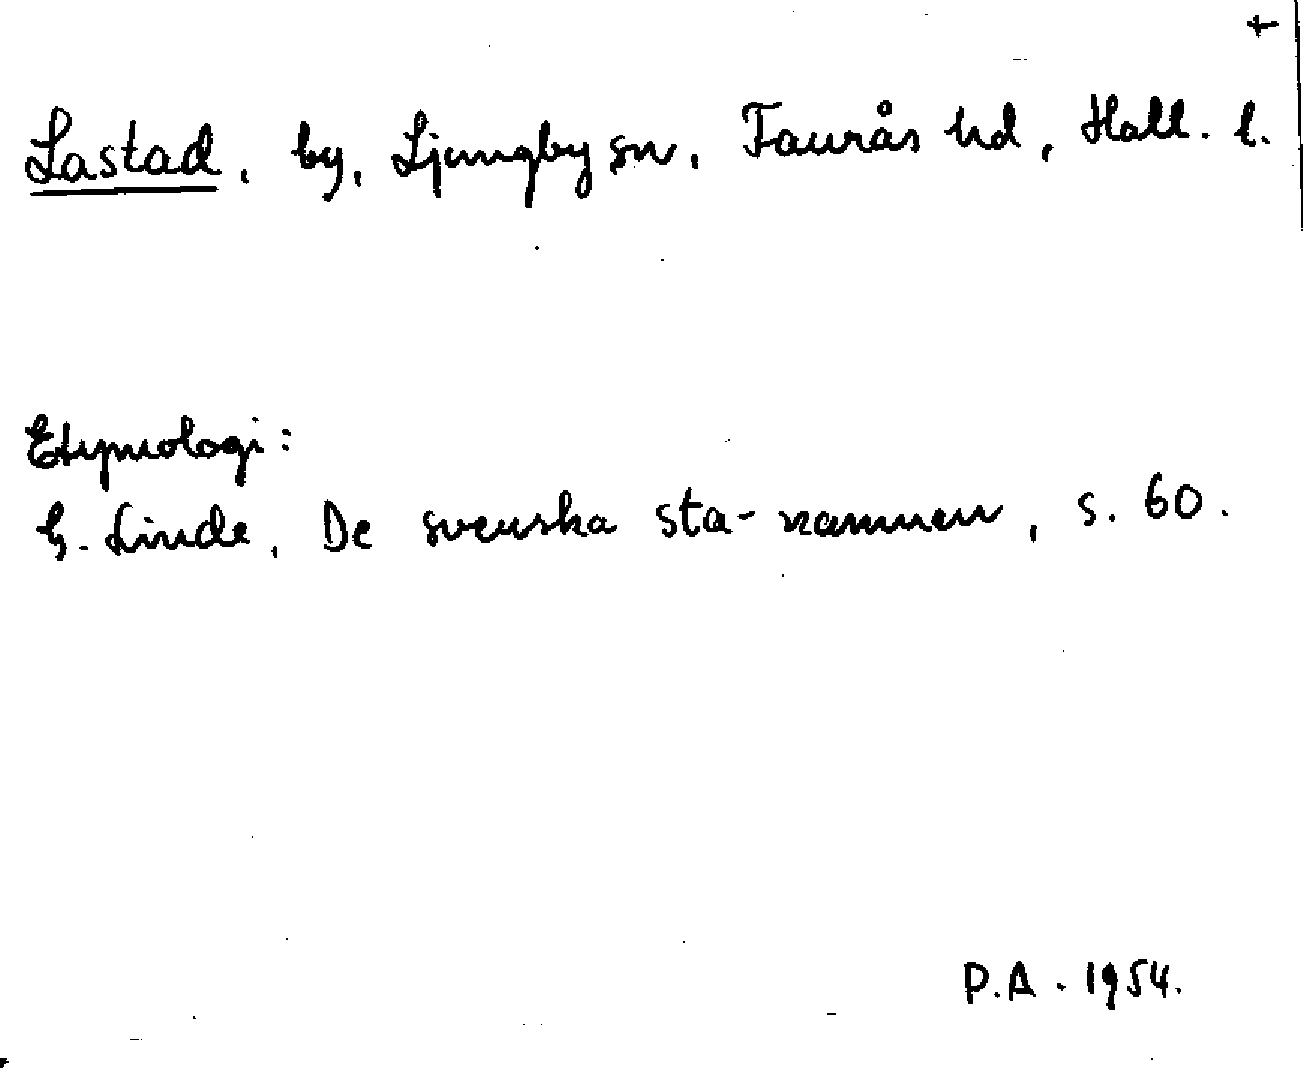 +
Lastad, by, Ljungby sn, Faurås hd, Hall. l.
Etymologi:
G. Linde, De svenska sta-namnen, s. 60.
P.A. 1954.